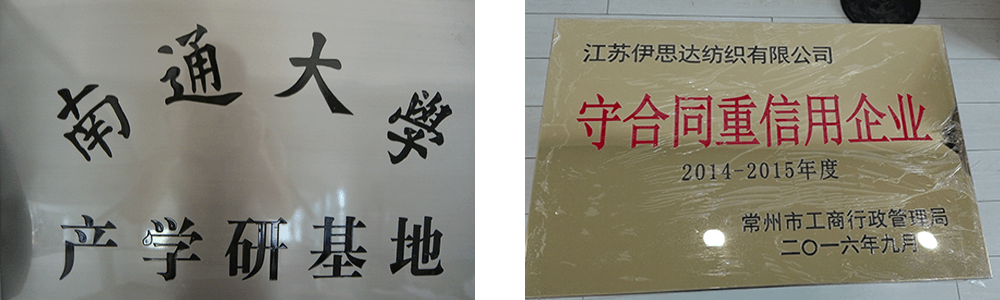 南通大学
产学研基地
江苏伊思达纺织有限公司
守合同重信用企业
2014-2015年度
常州市工商行政管理局
二〇一六年九月